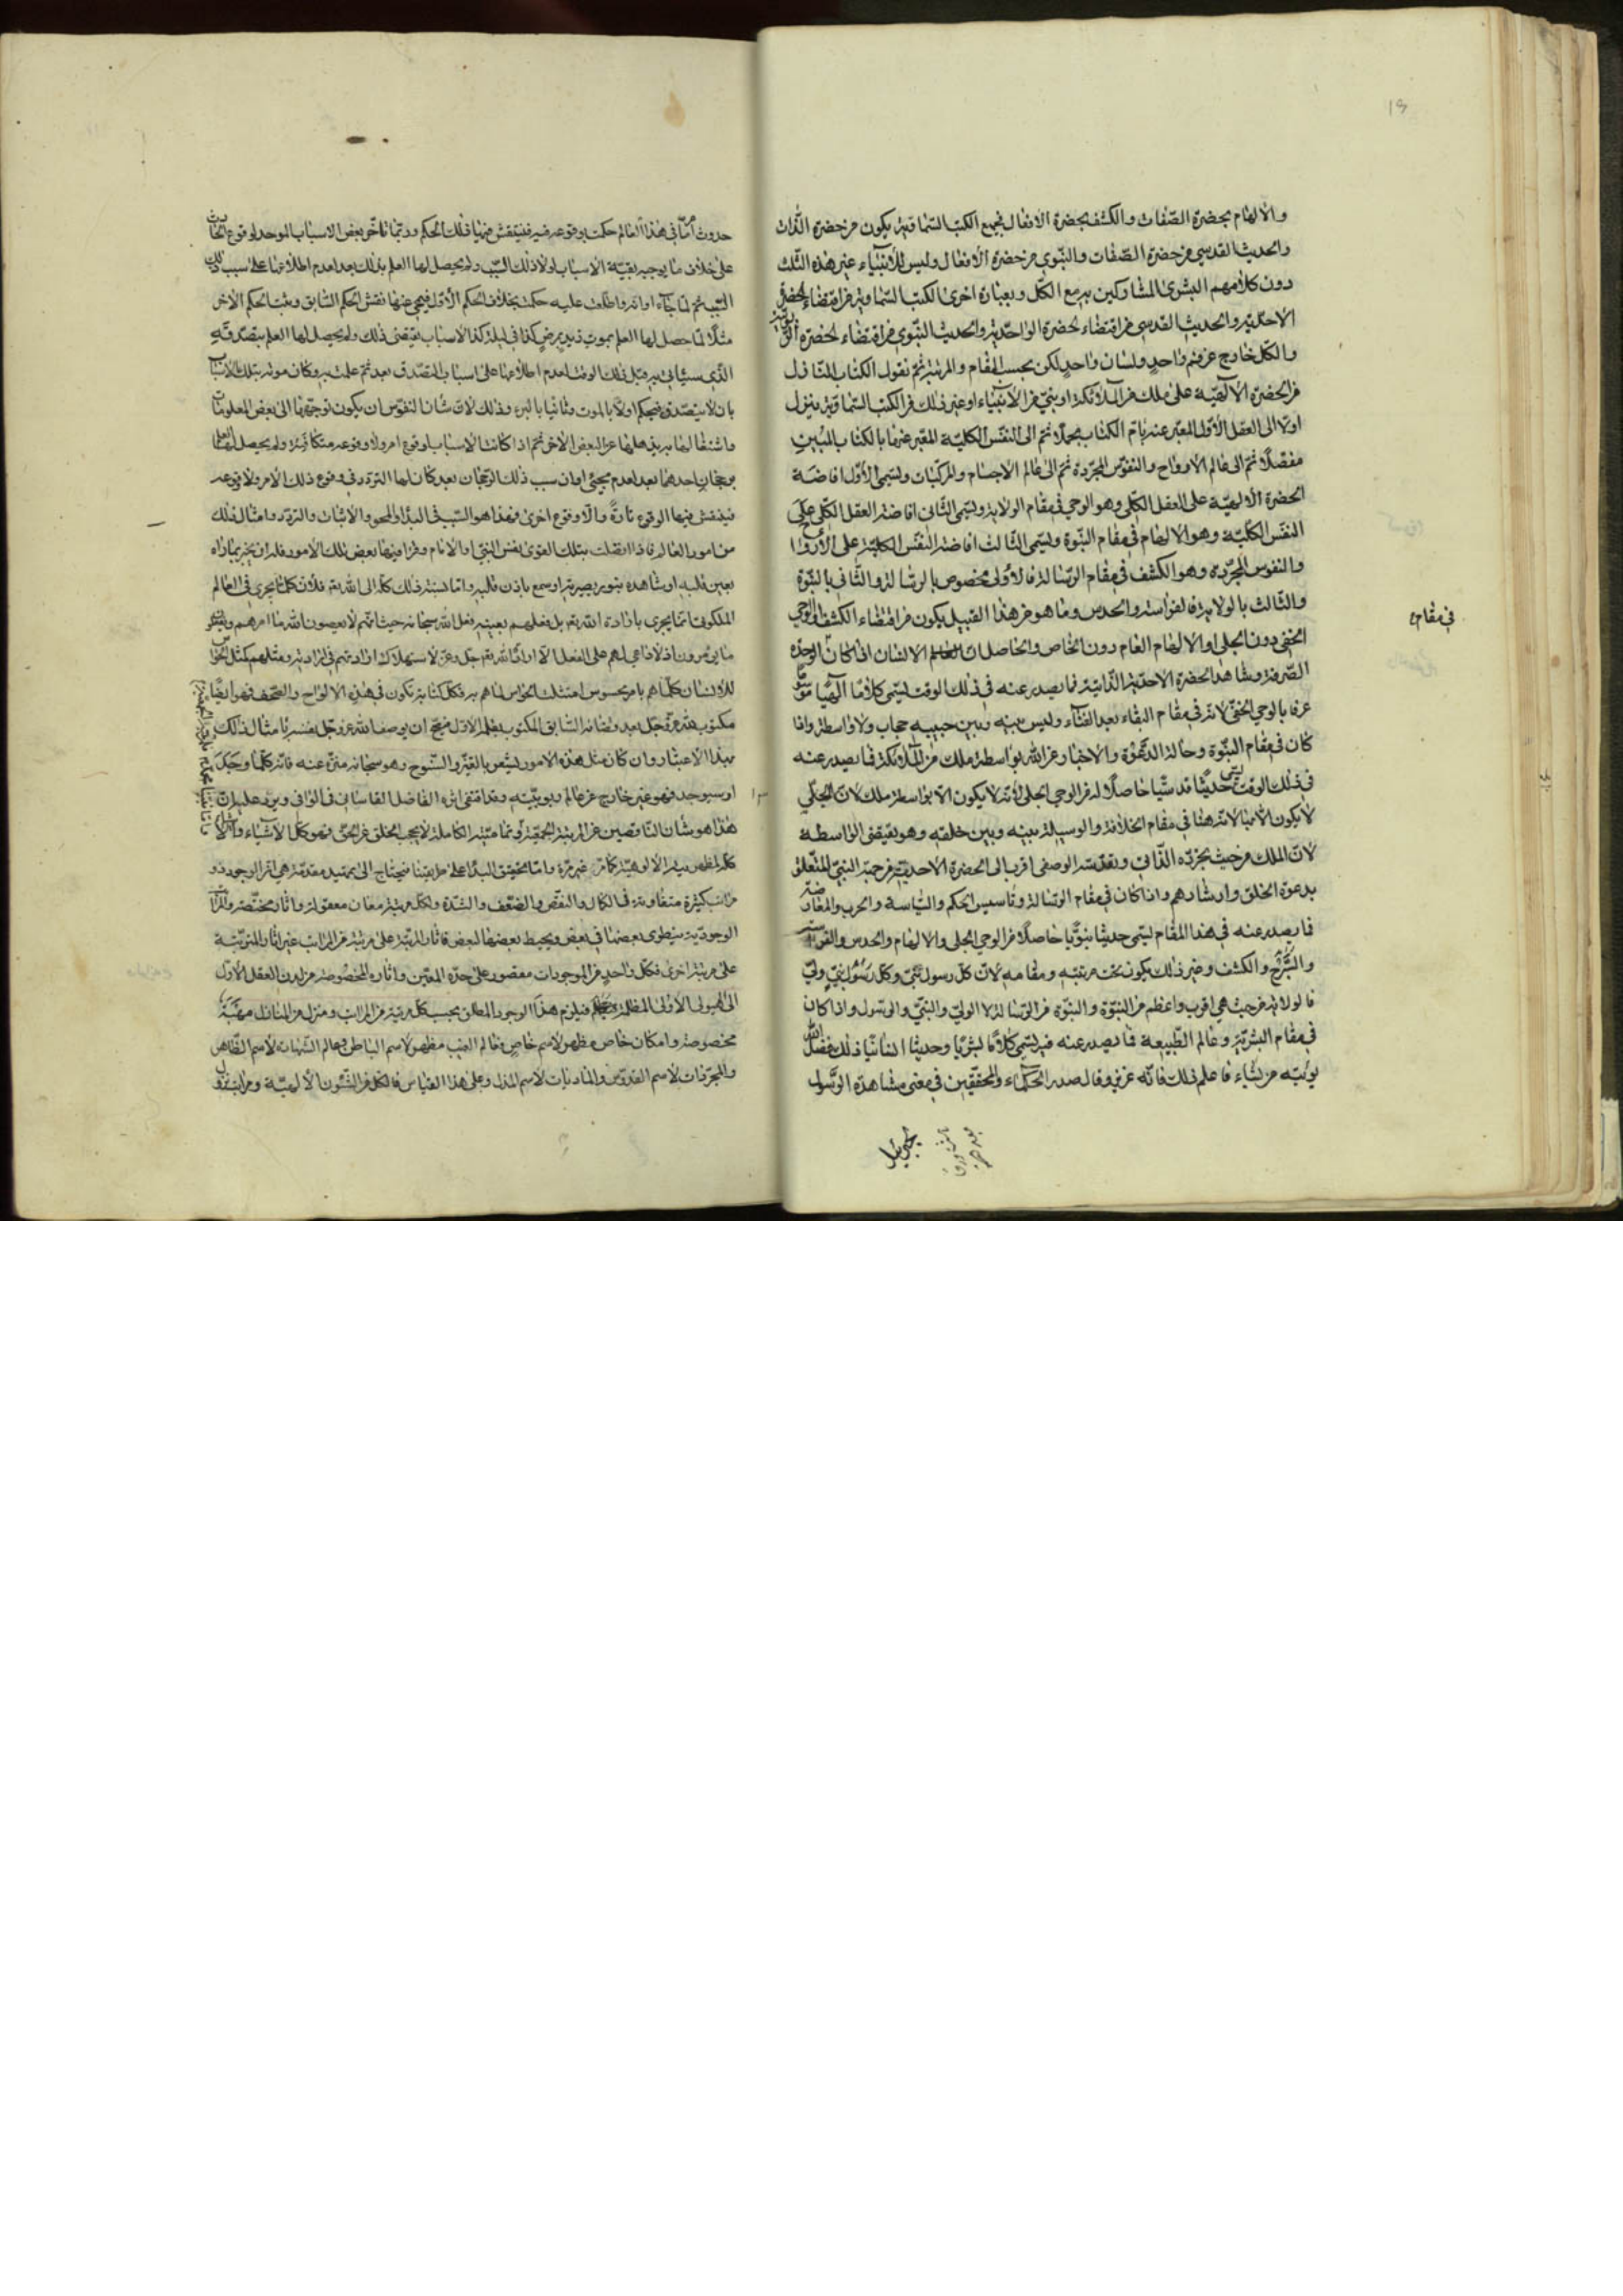 والالهام بحضرة الصفات والكشف بحضرة الافعال فجميع الكتب السماوية يكون من حضرة الذات
والحديث القدسي من حضرة الصفات والنبوي من حضرة الافعال وليس للأنبياء غير هذه الثلث
دون كلامهم البشرى المشاركين به مع الكل وبعبارة اخرى الكتب السماوية من اقتضاء لحضرة
الاحدية والحديث القدسي من اقتضاء لحضرة الواحدية والحديث النبوي من اقتضاء لحضرة الربوبية
والكل خارج عن فم واحد ولسان واحد لكن بحسب المقام والمرتبة ثم نقول الكتاب المنازل
من الحضرة الالهية على ملك من الملائكة او بني من الانبياء او غير ذلك من الكتب السماوية ينزل
اولا الى العقل الأول المعبر عنه بام الكتاب مجملا ثم الى النفس الكلية المعبر عنها بالكتاب المبين
مفصلا ثم الى عالم الارواح والنفوس المجردة ثم الى عالم الاجسام والمركبات ويسمى الاول افاضة
الحضرة الالهية على العقل الكلي وهو الوحي في مقام الولاية ويسمى الثاني افاضة العقل الكلي على
النفس الكلية وهو الالهام في مقام النبوة ويسمى الثالث افاضة النفس الكلية على الارواح
والنفوس المجردة وهو الكشف في مقام الرسالة فالاولى مخصوص بالرسالة والثاني بالنبوة
والثالث بالولاية فالفراسة والحدس وما هو من هذا القبيل يكون من اقتضاء الكشف والوحي
الخفي دون الجلي او الالهام العام دون الخاص والحاصل ان الانسان اذا كان الوحدة
الصرفة وشاهد الحضرة الاحدية الذاتية فما يصدر عنه في ذلك الوقت يسمى كلاما الهيا موسوما
عرفا بالوحي الخفي لانه في مقام البقاء بعد الفناء وليس بينه وبين حبيبه حجاب ولا واسطة واذا
كان في مقام النبوة وحالة الدعوة والاخبار عن الله بواسطة ملك من الملائكة فما يصدر عنه
في ذلك الوقت يسمى حديثا قدسيا حاصلا له من الوحي الجلي لأنه لا يكون الا بواسطة ملك لان الجلي
لا يكون الا بها لانه هنا في مقام الخلافة والوسيلة بينه وبين خلقه وهو يقتضى الواسطه
لان الملك من حيث تجرده الذاتي وتقدسه الوصفى اقرب الى الحضرة الاحدية من جهة النبي المتعلقة
بدعوة الخلق وارشادهم واذا كان في مقام الرسالة وتأسيس الحكم والسياسة والحرب والمعارضة
فما يصدر عنه في هذا المقام يسمى حديثا نبويا حاصلا من الوحي الجلي والالهام والحدس والفراسة
والكشف وغير ذلك يكون تحت مرتبته ومقامه لان كل رسول نبي وكل رسول نبي ولي
فالولاية من حيث هي اقرب واعظم من النبوة والنبوة من الرسالة لا الولي والنبي والرسول واذا كان
في مقام البشرية وعالم الطبيعة فما يصدر عنه فيه يسمى كلاما بشريا وحديثا انسانيا ذلك فضل الله
يؤتيه من يشاء فاعلم ذلك فانه عزيز وقال صدر الحكماء والمحققين في معنى مشاهدة الرسول
في مقام
حدوث امر ما في هذا العالم حكمت بوقوعه فيه فينتقش فيها ذلك الحكم وربما تأخر بعض الاسباب الموجبة لوقوع الحادث
على خلاف ما يوجبه بقية الاسباب لولا ذلك السبب ولم يحصل لها العلم بذلك بعد لعدم اطلاعها على سبب ذلك
السبب ثم لما جاء اوانه واطلعت عليه حكمت بخلاف الحكم الأول فيمحى عنها نقش الحكم السابق ويثبت الحكم الاخر
مثلا لما حصل لها العلم بموت زيد بمرض كذا في ليلة كذا لاسباب يقتضى ذلك ولم يحصل لها العلم بتصدقه
الذي سيأتي به قبل ذلك الوقت لعدم اطلاعها على اسباب التصدق بعد ثم علمت به وكان موته بتلك الاسباب
بان لا يتصدق فيحكم اولا بالموت وثانيا بالبرء وذلك لان شان النفوس ان يكون توجهها الى بعض المعلومات
ثم اذا كانت الاسباب لوقوع امر ولا وقوعه متكافئة ولم يحصل لها العلم
برجحان احدهما بعد لعدم مجئ اوان سبب ذلك الرجحان بعد كان لها التردد في وقوع ذلك الامر ولا وقوعه
فينتقش فيها الوقوع تارة واللاوقوع اخرى فهذا هو السبب في البداء والمحو والاثبات والتردد وامثال ذلك
من امور العالم فاذا اتصلت بتلك القوى نفس النبي او الامام وقرا فيها بعض تلك الامور فله ان يخبر بما راه
بعين قلبه او شاهده بنور بصيرته او سمع باذن قلبه واما نسبته ذلك كله الى الله تع فلان كلما يجرى في العالم
الملكوتي انما يجرى بارادة الله تع بل فعلهم بعينه فعل الله سبحانه حيث انهم لا يعصون الله ما امرهم ويفعلون
ما يؤمرون اذ لا داعي لهم على الفعل الا ارادة الله جل وعز لاستهلاك ارادتهم في ارادته ومثلهم كمثل الحواس
للانسان كلما هم بامر محسوس امتثلت الحواس لما هم به فكل كتابة تكون في هذه الالواح والصحف فهو ايضا
مكتوب الله عز وجل بعد قضائه السابق المكتوب بقلمه الاول فيصح ان يوصف الله عز وجل نفسه بامثال ذلك
بهذا الاعتبار وان كان مثل هذه الامور يشعر بالتغير والسنوح وهو سبحانه منزه عنه فانه كلما وجد
او سيوجد فهو غير خارج عن عالم ربوبيته وقد اقتفى اثره الفاضل القاساني في الوافي ويرد عليه ان
هذا هو شان الناقصين عن المرتبة الجمعية واما مرتبة الكاملة لا يحجب الخلق عن الحق فهو كل الاشياء
كما مر غير مرة واما تحقيق البداء على طريقتنا فيحتاج الى تمهيد مقدمة هي ان الوجود ذو
مراتب كثيرة متفاوتة في الكمال والنقص والضعف والشدة ولكل مرتبة معان معقولة واثار مختصة
الوجودية ينطوى بعضها في بعض ويحيط بعضها لبعض فاثار المرتبة على مرتبة من المراتب غير اثار المترتبة
على مرتبة اخرى فكل واحد من الموجودات مقصور على حده المعين واثاره المخصوصة من لدن العقل الاول
الى الهيولى الاولى المظلمة فيلزم هذا الوجود المطلق بحسب كل مرتبة من المراتب ومنزل من المنازل
مخصوصة وامكان خاص مظهر لاسم خاص فعالم الغيب مظهر لاسم الباطن وعالم الشهادة لاسم الظاهر
والمجردات لاسم القدوس والماديات لاسم المذل وعلى هذا القياس فالكل من الشئون الالهية